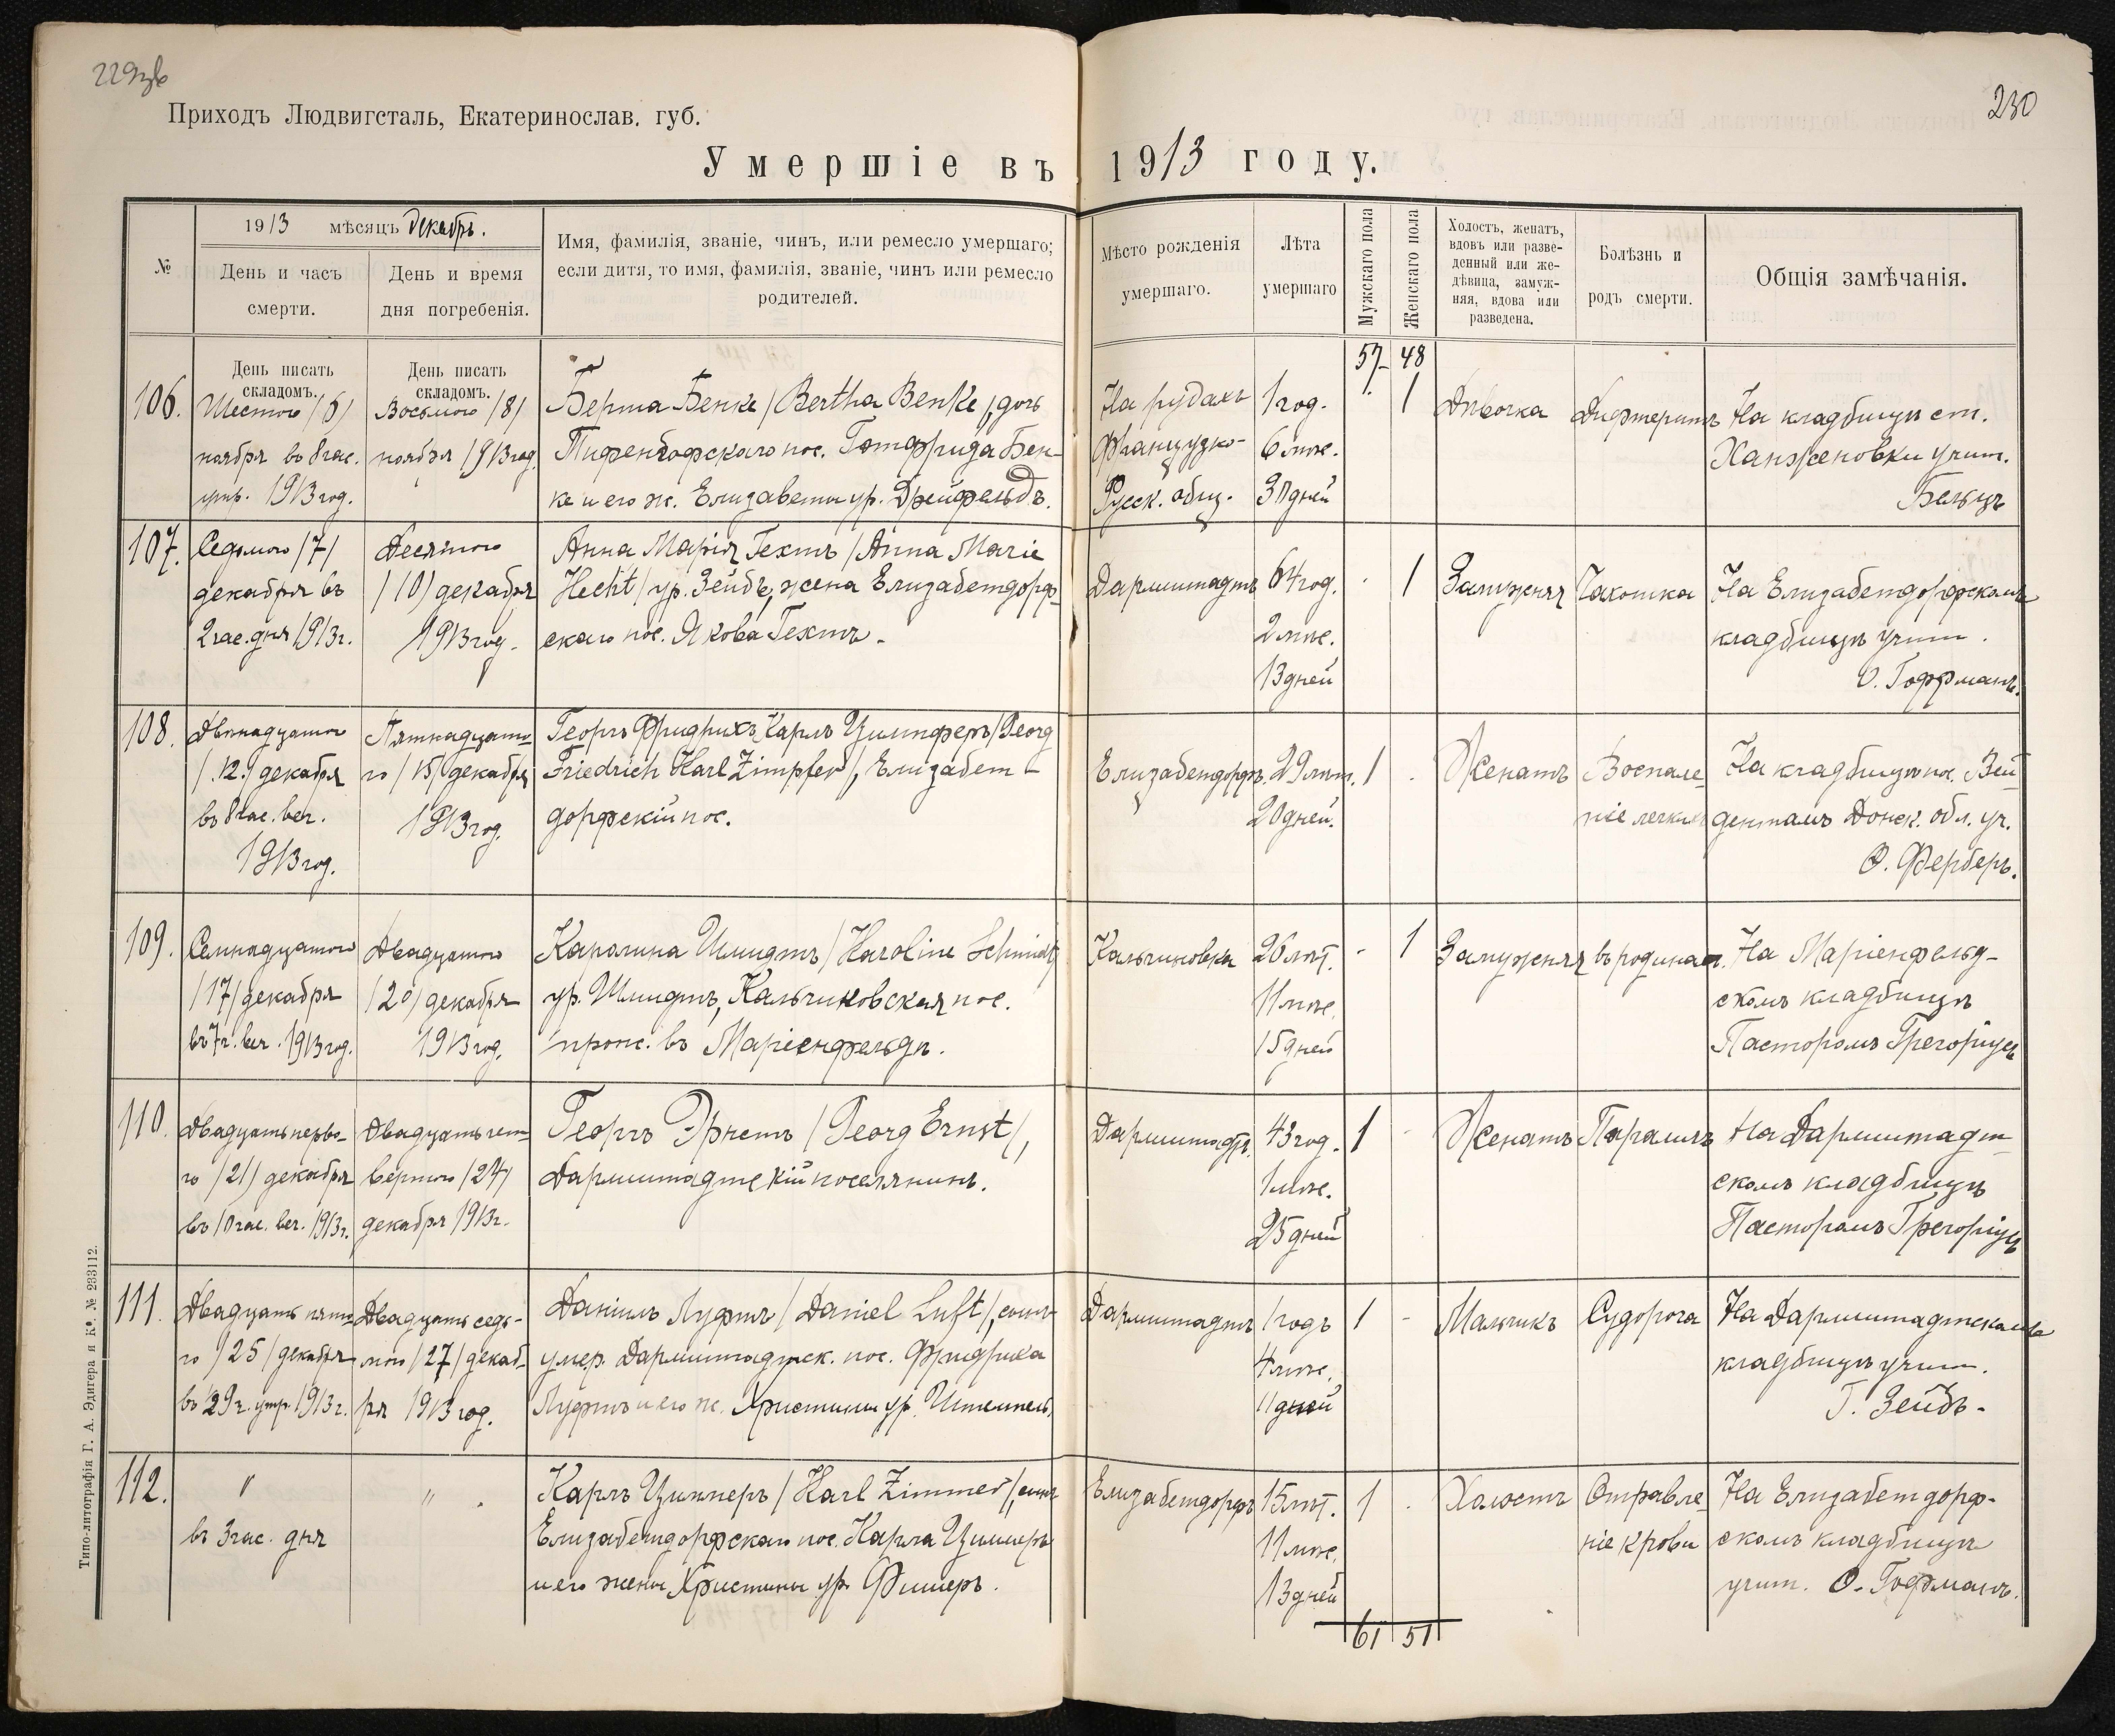 229зв
230
Приходъ Людвигсталь, Екатеринослав. губ.
Умершіе въ 1913 году.
№
1913 мѣсяцъ Декабрь.
День и часъ
смерти.
День и время
дня погребенія.
Имя, фамилія, званіе, чинъ, или ремесло умершаго;
если дитя, то имя, фамилія, званіе, чинъ или ремесло
родителей.
Мѣсто рожденія
умершаго.
Лѣта
умершаго
Мужскаго пола
Женскаго пола
Холостъ, женатъ,
вдовъ или разве-
денный или же-
дѣвица, замуж-
няя, вдова или
разведена.
Болѣзнь и
родъ смерти.
Общія замѣчанія.
День писать
складомъ.
День писать
складомъ.
57 48
106.
Шестого /6/
ноября въ 8 час.
утр. 1913 год.
Восьмого /8/
ноября 1913 год.
Берта Бенке /Bertha Benke/, дочь
Тифенбофскаго пос. Готфрида Бен-
ке и его ж. Елизаветы ур. Дрейфельдъ.
На рудахъ
Французко-
Русск. общ.
1 год.
6 мѣс.
30 дней
1
Дѣвочка
Дифтеритъ
На кладбищѣ ст.
Ханженовки учит.
Бельцъ
107.
Седьмого /7/
декабря въ
2 час. дня 1913 г.
Десятого
/10/ декабря
1913 год.
Анна Марія Гехтъ /Anna Marie
Hecht/ ур. Зейбъ, жена Елизабетдорф-
скаго пос. Якова Гехтъ.
Дармштадтъ
64 год.
2 мѣс.
13 дней
1
Замужняя
Чахотка
На Елизабетдорфскомъ
кладбищѣ учит.
О. Гоффманъ.
108.
Двѣнадцатого
/12./ декабря
въ 8 час. веч.
1913 год.
Пятнадцато-
го /15/ декабря
1913 год.
Георгъ Фридрихъ Карлъ Цимпферъ /Georg
Friedrich Karl Zimpfer/, Елизабет-
дорфскій пос.
Елизабетдорфъ
29 лѣт.
20 дней.
1
Женатъ
Воспале-
ніе легкихъ
На кладбищѣ пос. Вей-
денталь Донск. обл. уч.
О. Ферберъ.
109.
Семнадцатого
/17/ декабря
въ 7 ч. веч. 1913 год.
Двадцатого
/20/ декабря
1913 год.
Каролина Шмидтъ /Karoline Schmidt/
ур. Шмидтъ, Кальчиновская пос.
прож. въ Маріенфельдѣ.
Кальчиновка
26 лѣт.
11 мѣс.
15 дней
1
Замужняя
въ родинах.
На Маріенфельд-
скомъ кладбищѣ
Пасторомъ Грегоріусъ
110.
Двадцать перво-
го /21/ декабря
въ 10 час. веч. 1913 г.
Двадцать чет-
вертого /24/
декабря 1913 г.
Георгъ Эрнстъ /Georg Ernst/,
Дармштадтскій поселянинъ.
Дармштадтъ
43 год.
1 мѣс.
25 дней
1
Женатъ
Параличъ
На Дармштадт-
скомъ кладбищѣ
Пасторомъ Грегоріусъ
111.
Двадцать пято-
го /25/ декабря
утр. 1913 г.
Двадцать седь-
мого /27/ декаб-
ря 1913 год.
Даніилъ Луфтъ /Daniel Luft/, сынъ
умер. Дармштадтск. пос. Фридриха
Луфтъ и его ж. Христины ур. Штемпель.
Дармштадтъ
1 годъ
4 мѣс.
11 дней
1
Мальчикъ
Судорога
На Дармштадтскомъ
кладбищѣ учит.
Г. Зейбъ.
112.
"
въ 3 час. дня
"
Карлъ Циммеръ /Karl Zimmer/, сынъ
Елизабетдорфскаго пос. Карла Циммеръ
и его жены Христины ур. Фишеръ.
Елизабетдорфъ
15 лѣт.
11 мѣс.
13 дней
1
Холостъ
Отравле-
ніе крови
На Елизабетдорф-
скомъ кладбищѣ
учит. О. Гофманъ.
61 51
Типо-литографія Г. А. Эдигера и Ко. № 233112.